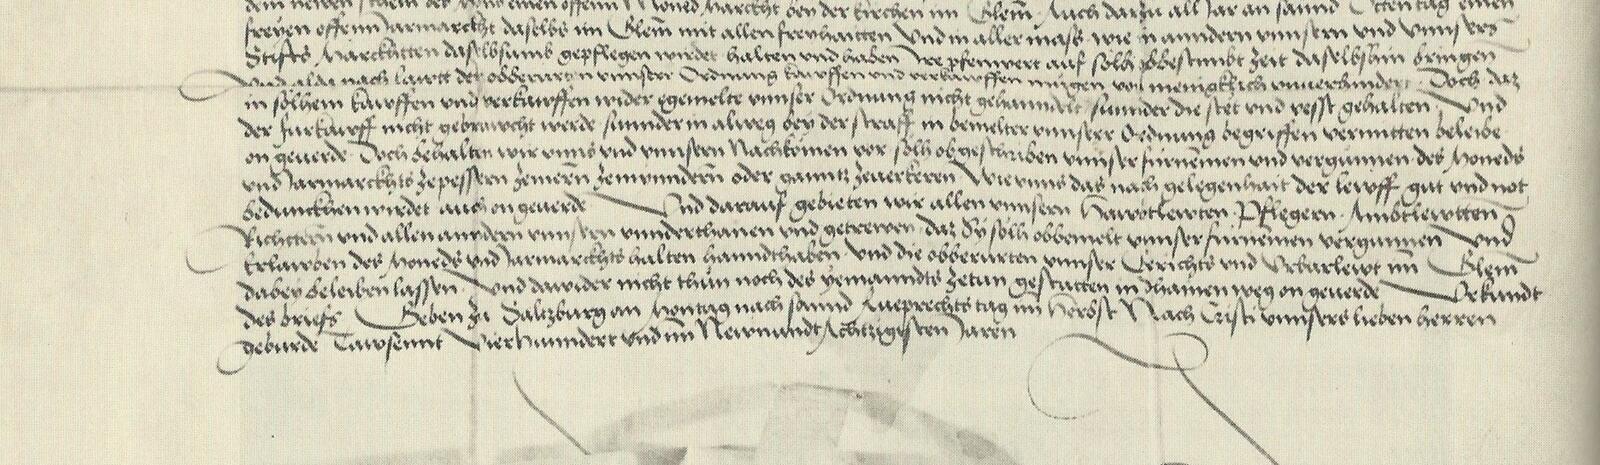 dem newen schein des Mons einen offenn Moned Marckht bey der kirchen im Glemm Auch darzu all Jar an sannd tag einen
freyen offenn Jarmarckht daselbs im Glemm mit allen freyhaitten Und in aller mass wie in anndern unnsern und unnsers
Stiffts Marckhten daselbsumb gepflegen wirdet halten und haben Ire pfenwert auf solh obbestimbt zeit daselbshin bringen
und alda nach lautt der obberurten unnserr Ordnung kauffen und verkauffen mugen von menigklich unverhindert Doch daz
in solhem kauffen und verkauffen wider egemelte unnser Ordnung nicht gehanndelt sunnder die stet und vesst gehalten Und
der furkauff nicht gebraucht werde sunnder in alweg bey der straff in bemelter unnserr Ordnung begriffen vermitten beleibe
on geuerde Doch behalten wir unns und unnsern Nachkomen vor solh obgeschriben unnser furnemen und vergunnen des Moneds
und Jarmarckhts zepessern zemern zemynndern oder ganntz zeuerkeren Wie unns das nach gelegenhait der lewff gut und not
bedunckhen wirdet auch on geuerde Und darauf gebieten wir allen unnsern Hawbtlewten Pflegern Ambtlewtten
Richttern und allen anndern unnsern unnderthanen und getrewen daz Sy solh obbemelt unnser furnemen vergunnen Und
Erlawben des Moneds und Jarmarckhts halten hanndthaben und die obberurten unnser Gerichts und Urbarlewt im Glemm
dabey beleiben lassen Und dawider nicht thun noch des yemanndts zetun gestatten in dhainen weg on geuerde Urkundt
des briefs Geben zu Saltzburg an Montag nach sannd Rueprechts tag im Herbst Nach Cristi unnsers lieben herren
geburde Tawsennt Vierhundert und im Newnundt Achtzigisten Jaren